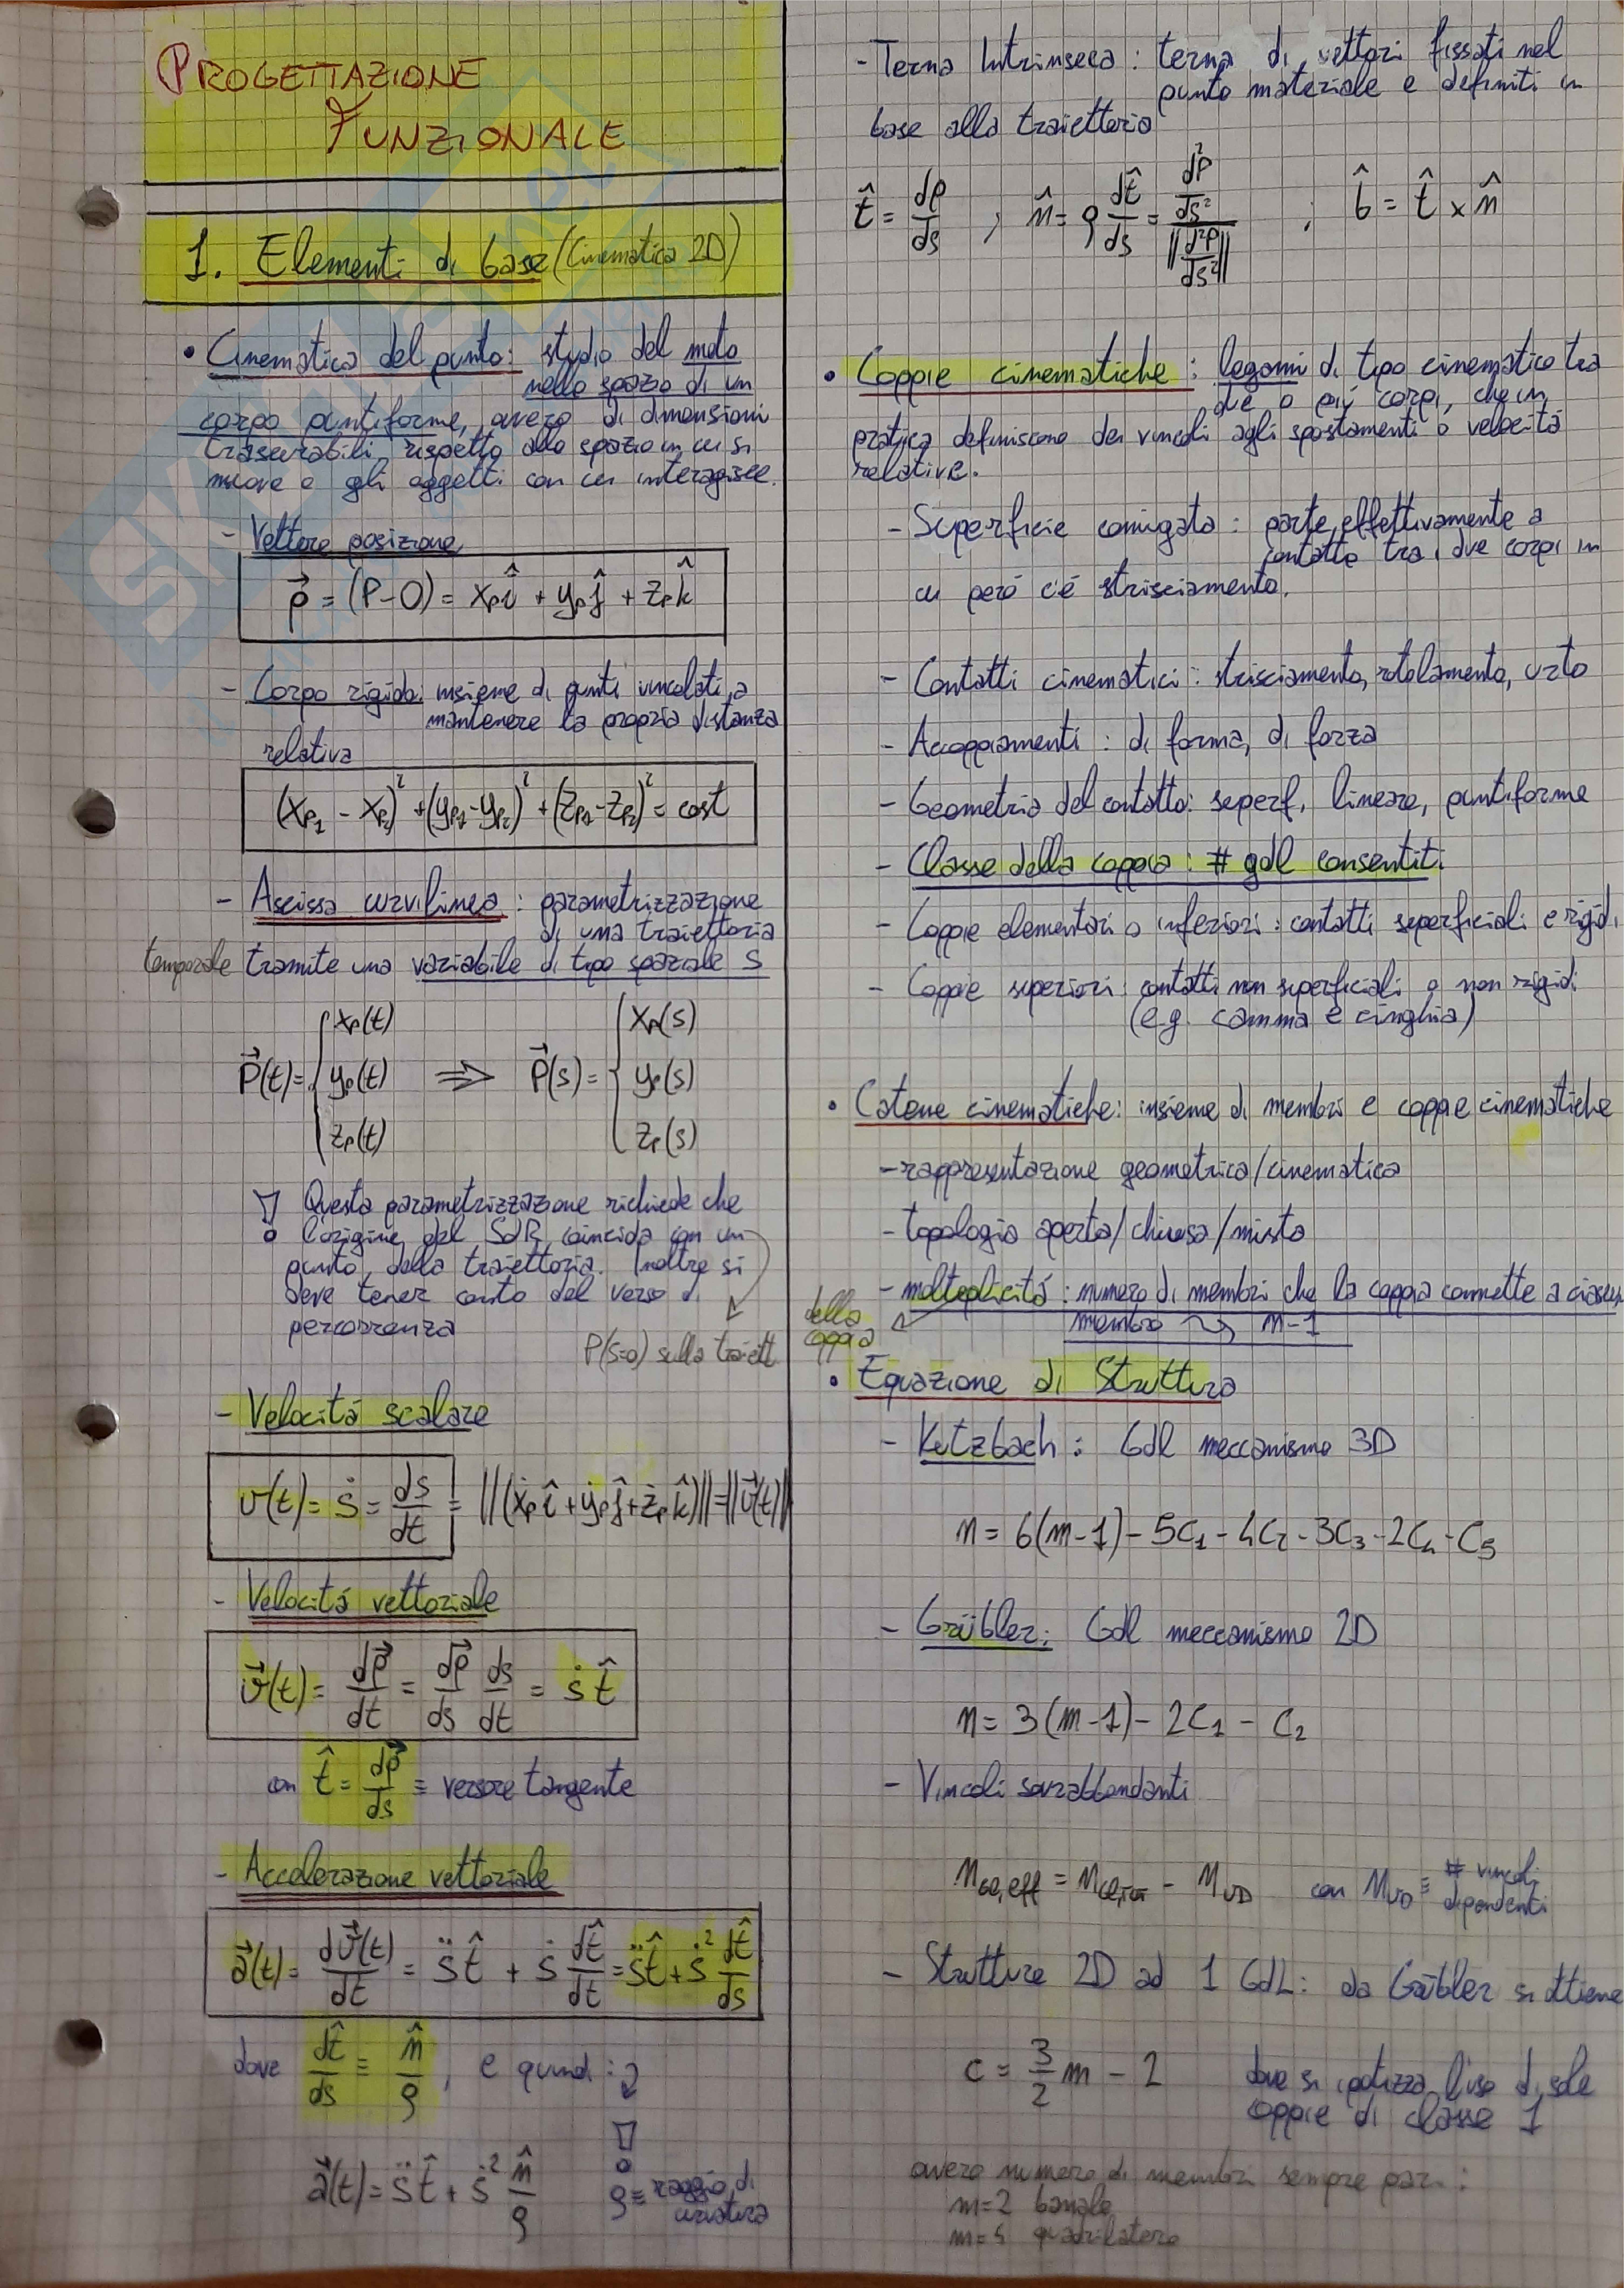 PROGETTAZIONE
FUNZIONALE
1. Elementi di base (Cinematica 2D)
• Cinematica del punto: studio del moto
nello spazio di un
corpo puntiforme, ovvero di dimensioni
trascurabili rispetto allo spazio in cui si
muove e gli oggetti con cui interagisce.
- Vettore posizione
p⃗ = (P-O) = xₚ î + yₚ ĵ + zₚ k̂
- Corpo rigido: insieme di punti vincolati a
mantenere la propria distanza
relativa
(x_P1 - x_P2)² + (y_P1 - y_P2)² + (z_P1 - z_P2)² = cost
- Ascissa curvilinea : parametrizzazione
di una traiettoria
temporale tramite una variabile di tipo spaziale s
P⃗(t) = { xₚ(t) yₚ(t) zₚ(t) ⇒ P⃗(s) = { xₚ(s) yₚ(s) zₚ(s)
! Questa parametrizzazione richiede che
l'origine del SdR coincida con un
punto della traiettoria. Inoltre si
deve tener conto del verso di
percorrenza
P(s=0) sulla traiett.
- Velocitá scalare
v(t) = ṡ = ds/dt = ||(ẋₚ î + ẏₚ ĵ + żₚ k̂)|| = ||v⃗(t)||
- Velocitá vettoriale
v⃗(t) = dp⃗/dt = dp⃗/ds ds/dt = ṡ t̂
con t̂ = dp⃗/ds ≡ versore tangente
- Accelerazione vettoriale
a⃗(t) = dv⃗(t)/dt = s̈ t̂ + ṡ dt̂/dt = s̈ t̂ + ṡ² dt̂/ds
dove dt̂/ds ≡ n̂/ρ , e quindi :
a⃗(t) = s̈ t̂ + ṡ² n̂/ρ
! ρ ≡ raggio di
curvatura
- Terna Intrinseca : terna di vettori fissati nel
punto materiale e definiti in
base alla traiettoria
t̂ = dp/ds , n̂ = ρ dt̂/ds = (d²p/ds²)/||d²p/ds²|| ; b̂ = t̂ × n̂
• Coppie cinematiche : legami di tipo cinematico tra
due o più corpi, che in
pratica definiscono dei vincoli agli spostamenti o velocitá
relative.
- Superficie coniugata : parte effettivamente a
contatto tra i due corpi in
cui peró c'é strisciamento.
- Contatti cinematici : strisciamento, rotolamento, urto
- Accoppiamenti : di forma, di forza
- Geometria del contatto: superf., lineare, puntiforme
- Classe della coppia : # gdl consentiti
- Coppie elementari o inferiori : contatti superficiali e rigidi
- Coppie superiori : contatti non superficiali o non rigidi
(e.g. camma e cinghia)
• Catene cinematiche: insieme di membri e coppie cinematiche
- rappresentazione geometrica/cinematica
- topologia aperta/chiusa/mista
- molteplicitá : numero di membri che la coppia connette a ciascun
della
coppia
membro ⤳ m-1
• Equazione di Struttura
- Kutzbach : Gdl meccanismo 3D
n = 6(m-1) - 5C₁ - 4C₂ - 3C₃ - 2C₄ - C₅
- Grübler: Gdl meccanismo 2D
n = 3(m-1) - 2C₁ - C₂
- Vincoli sovrabbondanti
con n_VD ≡ # vincoli
dipendenti
- Strutture 2D ad 1 GdL: da Grübler si ottiene
c = 3/2 m - 2 dove si ipotizza l'uso di sole
coppie di classe 1
ovvero numero di membri sempre pari :
m=2 banale
quadrilatero